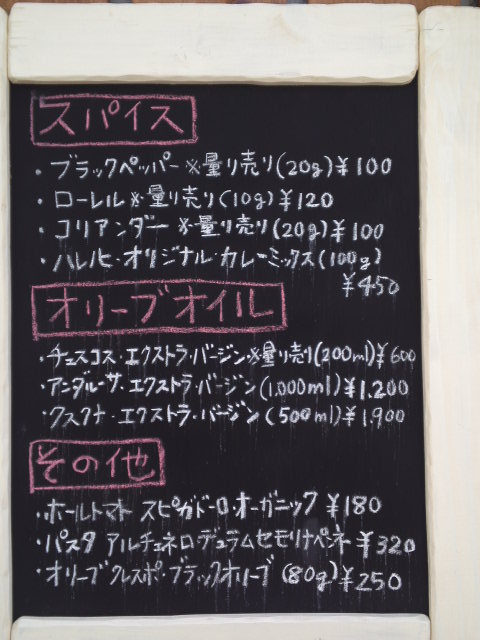 スパイス
・ブラックペッパー ※量り売り(20g)¥100
・ローレル ※量り売り(10g)¥120
・コリアンダー ※量り売り(20g)¥100
・ハレノヒ・オリジナル・カレーミックス(100g)
¥450
オリーブオイル
・チュスコス・エクストラ・バージン・※量り売り(200ml)¥600
・アンダルーサ・エクストラ・バージン(1,000ml)¥1.200
・クスクナ・エクストラ・バージン(500ml)¥1.900
その他
・ホールトマト スピガドーロ・オーガニック ¥180
・パスタ アルチュネロ・デュラムセモリナペンネ ¥320
・オリーブクレスポ・ブラックオリーブ(80g)¥250